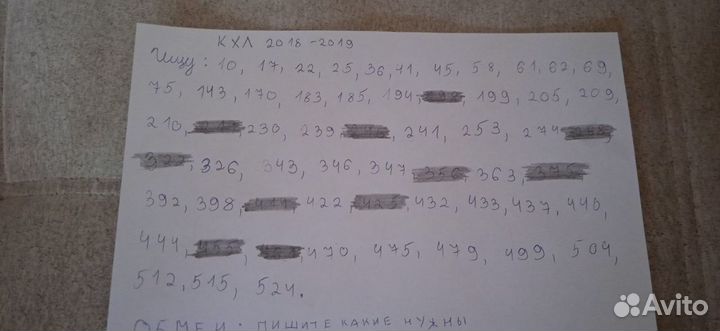 КХЛ 2018-2019
Ищу: 10, 17, 22, 25, 36, 41, 45, 58, 61, 62, 69,
75, 143, 170, 183, 185, 194, 199, 205, 209,
210, 230, 239, 241, 253, 274,
322, 326, 343, 346, 347, 356, 363, 375,
392, 398, 411, 422, 425, 432, 433, 437, 440,
444, 455, 470, 475, 479, 499, 504,
512, 515, 524.
ОБМЕН: ПИШИТЕ КАКИЕ НУЖНЫ
Avito